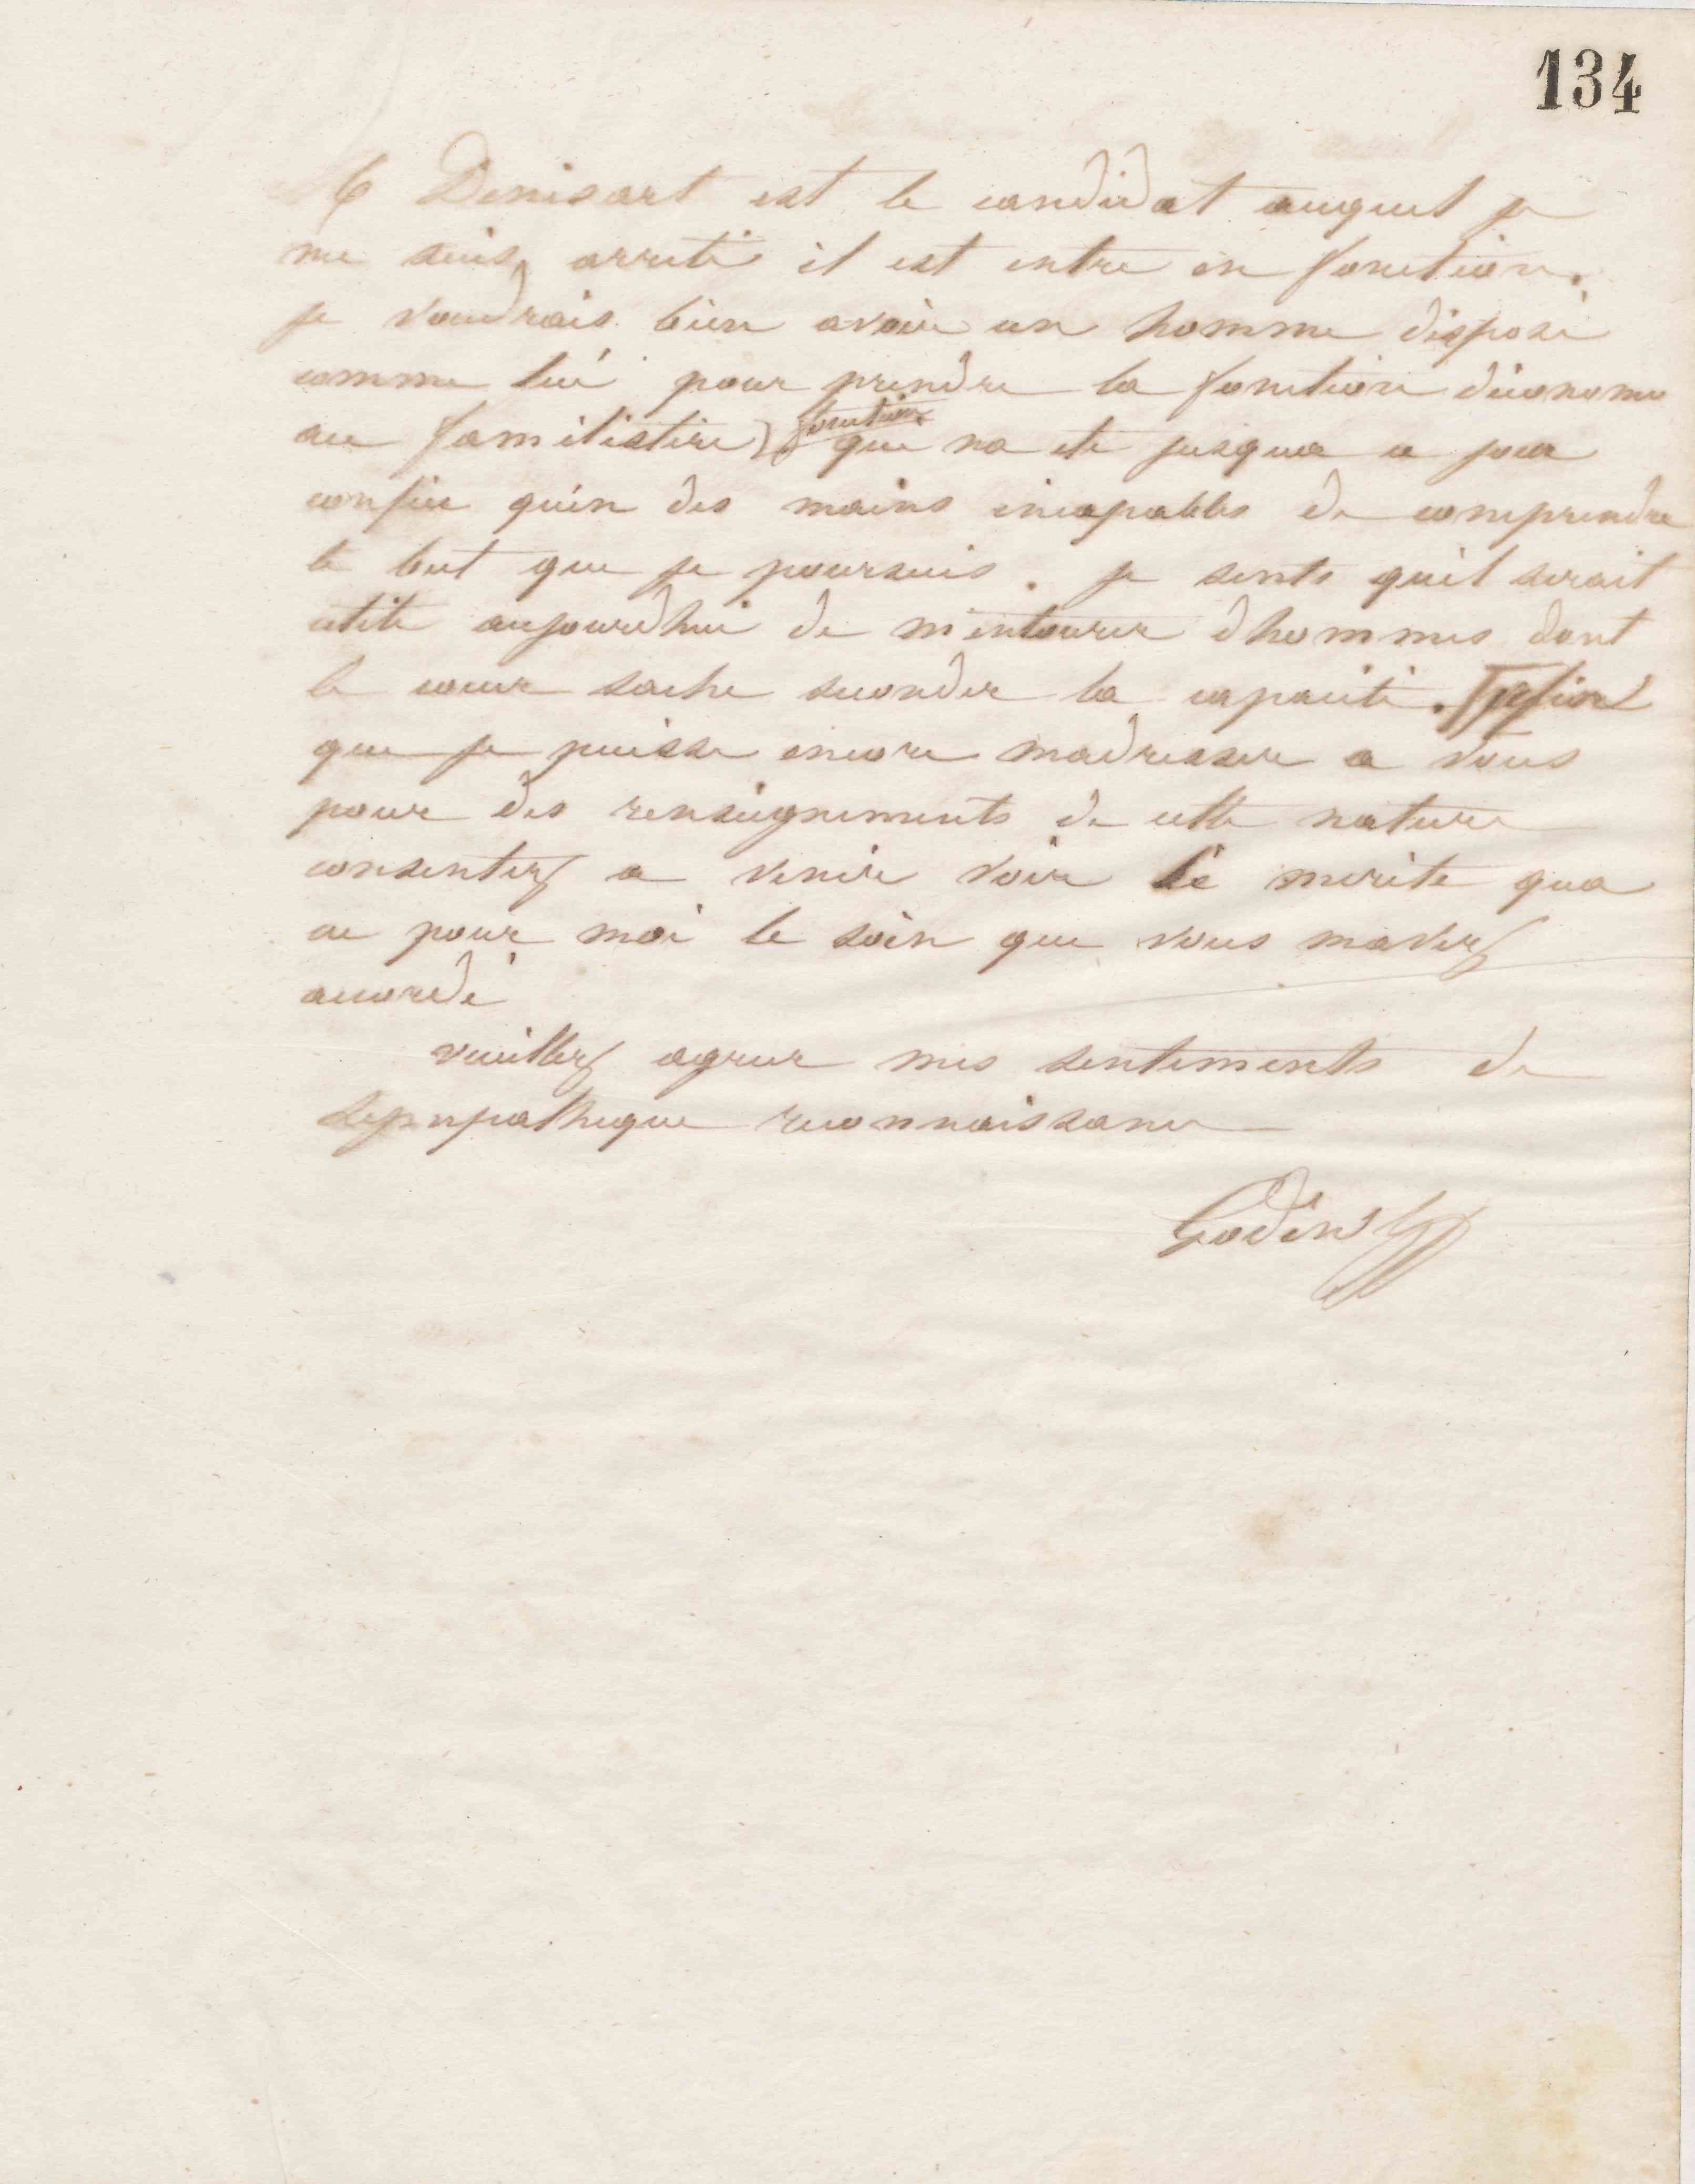 134
Denisart est le candidat auquel je
me suis arreté il est entre en fonction.
je voudrais bien avoir un homme disposé
comme lui pour prendre la fonction déconome
au familistère, fonction que na ete jusqua ce jour
confiée qu'en des mains incapables de comprendre
le but que je poursuis. je sents quil serait
utile aujourdhui de m'entourer dhommes dont
le cœur sache seconder la capacité. afin
que je puisse encore madresser a vous
pour des renseignements de cette nature
consentez a venir voir le merite qua
eu pour moi le soin que vous mavez
accordé
veuillez agreer mes sentiments de
sympathique reconnaissance
Godin